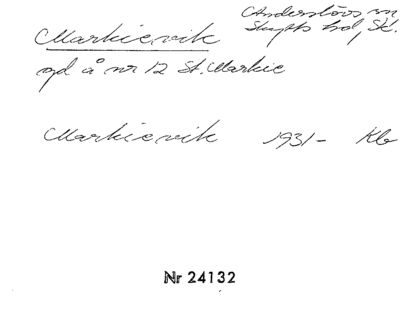 Markievik
Anderslövs sn
Skytts hd, Sk.
gd å nr 12 St. Markie
Markievik 1931- Kb
Nr 24132